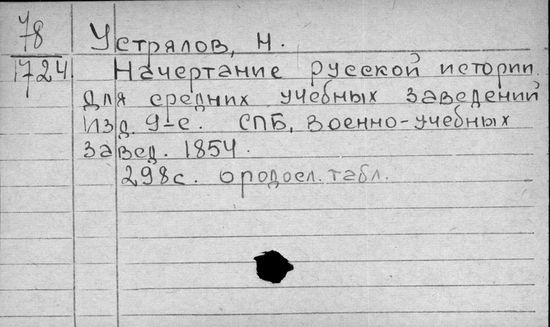 78 Устрялов, Н.
1724 Начертание русской истории
для средних учебных заведений
Изд. 9-е. СПБ, Военно-учебных
завед. 1854.
298с. ородосл. табл.